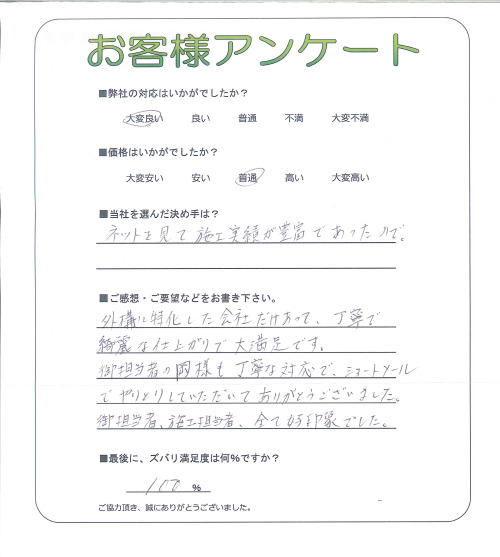 お客様アンケート
■弊社の対応はいかがでしたか?
大変良い 良い 普通 不満 大変不満
■価格はいかがでしたか?
大変安い 安い 普通 高い 大変高い
■当社を選んだ決め手は?
ネットを見て施工実績が豊富であったので。
■ご感想・ご要望などをお書き下さい。
外構に特化した会社だけあって、丁寧で
綺麗な仕上がりで大満足です。
御担当者の岡様も丁寧な対応で、ショートメール
でやりとりしていただいてありがとうございました。
御担当者、施工担当者、全て好印象でした。
■最後に、ズバリ満足度は何%ですか?
100 %
ご協力頂き、誠にありがとうございました。